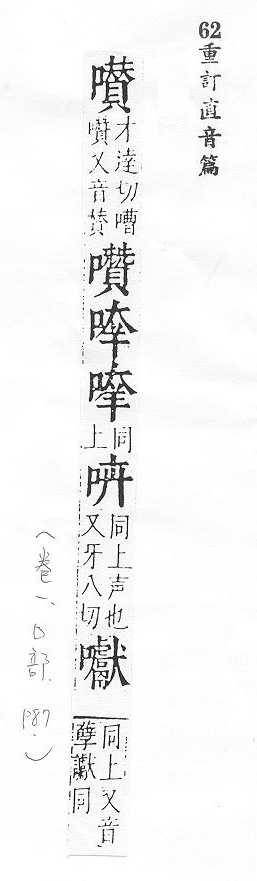 62重訂直音篇
囋
才達切嘈
囋又音賛
囋
同
上
同上声也
又牙八切
囐
同上又音
孽讞同
（卷一、口部、P87.）